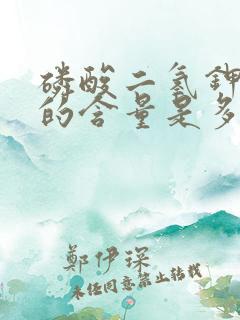 磷酸二氢钾
的含量是多
鄭伊琛
未经同意禁止转载